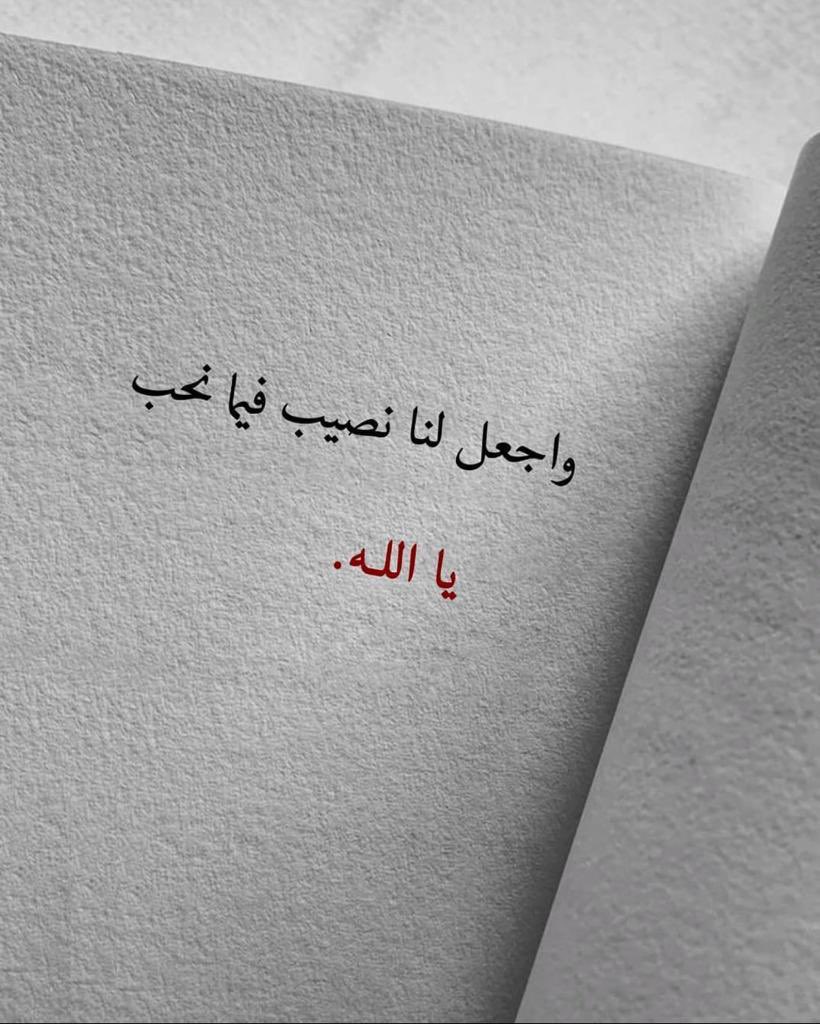 واجعل لنا نصيب فيما نحب
يا اللـه.